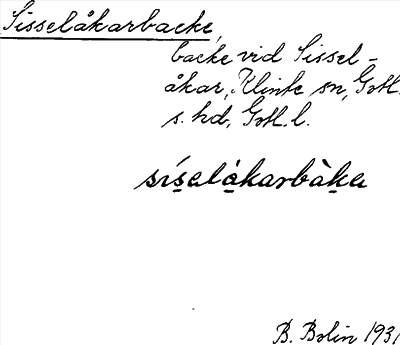 Sisselåkarbacke,
backe vid Sissel-
åkar, Klinte sn, Gotl.
s. hd, Gotl. l.
síselåkarbàka
B. Bolin 1931